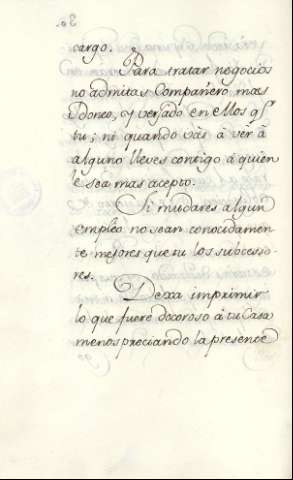 cargo.
Para tratar negocios
no admitas Compañero mas
Ydoneo, y versado en ellos qe
tu; ni quando vás á ver á
alguno lleves contigo á quien
le sea mas acepto.
Si mudares algun
empleo no sean conocidamen
te mejores que tu los subcesso-
res.
Dexa imprimir
lo que fuere decoroso á tu Casa
menospreciando la presente